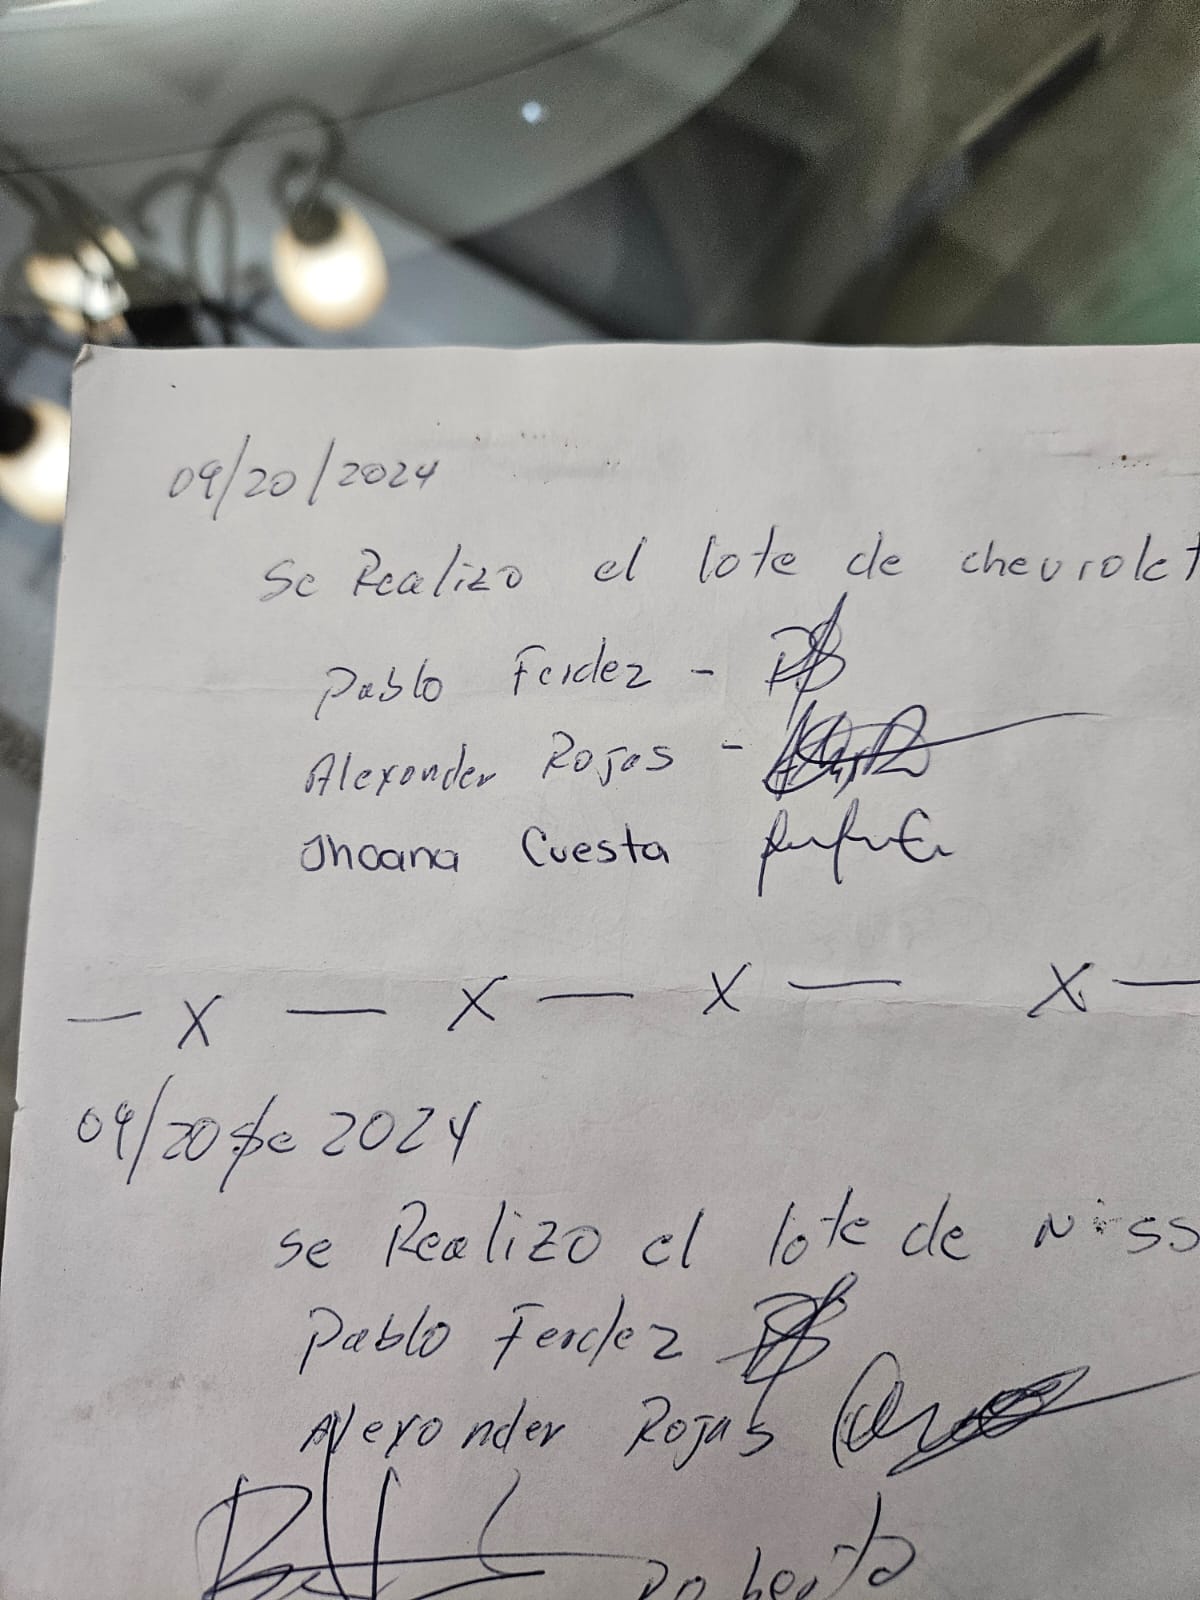 09/20/2024
Se Realizo el lote de chevrolet
Pablo Ferdez -
Alexander Rojas -
Jhoana Cuesta
— X — X — X — X —
09/20 de 2024
se Realizo el lote de Niss
Pablo Ferdez
Alexander Rojas
Roberto